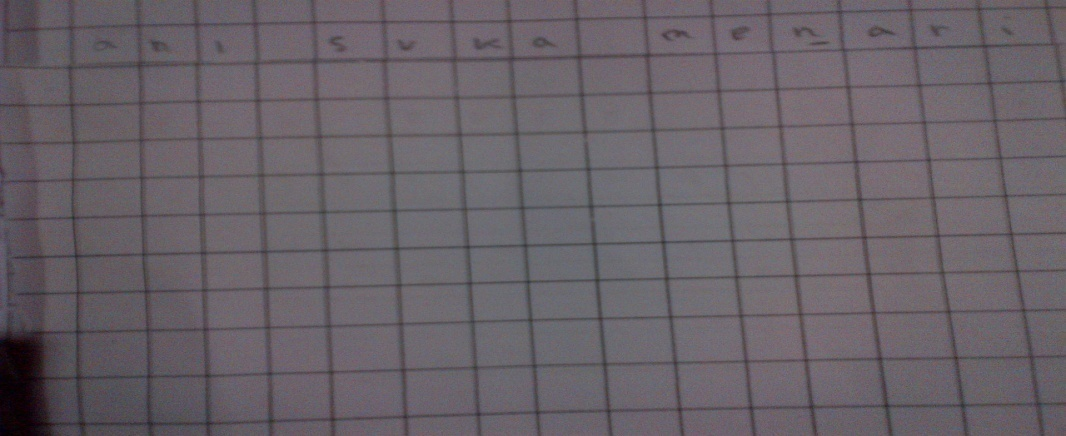 ani suka menari